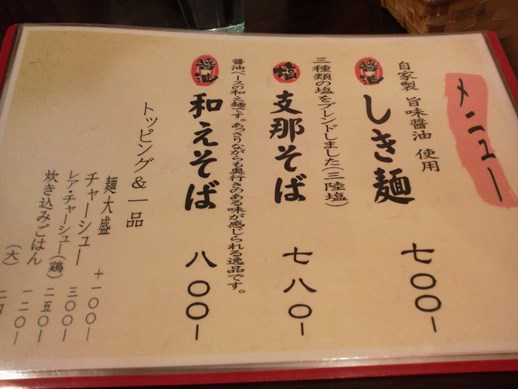 メニュー
自家製 旨味醤油 使用
醤油
しき麺 七〇〇-
三種類の塩をブレンドしました(三陸塩)
塩
支那そば 七八〇-
醤油ベースの和え麺です。あっさりながらも奥行きのある味が感じられる逸品です。
醤油
和えそば 八〇〇-
トッピング&一品
麺大盛 +一〇〇-
チャーシュー 三〇〇-
レア・チャーシュー(鶏) 二五〇-
炊き込みごはん 一二〇-
(大)